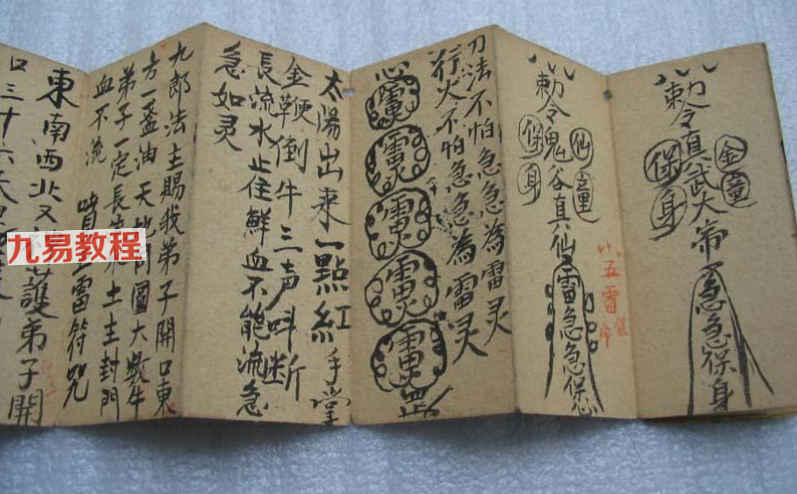 敕令真武大帝急急保身
金童
保身
敕令鬼谷真仙雷急急保
仙童
保身
小五雷
刀法不怕急急為雷灵
行火不怕急急為雷灵
太陽出來一點紅手掌
金鞭倒牛三声叫断
長流水止住鮮血不能流急
急如灵
九郎法主賜我弟子開口東
方一盏油天地圓大牛
弟子一定長生土主封門
血不流 雷符咒
東南西北又護弟子開
口三十六天
九易教程